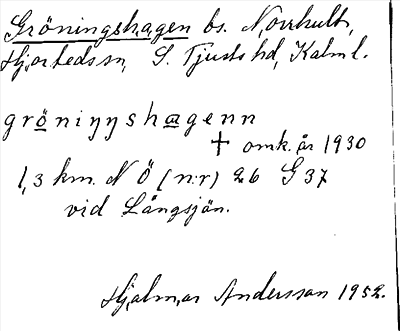 Gröningshagen bs. Norrhult,
Hjortedssn, S. Tjusts hd, Kalm l.
gröniŋŋshagenn
† omk. år 1930
1,3 km. N Ö (n:r) 26 G 37
vid Långsjön.
Hjalmar Andersson 1952.